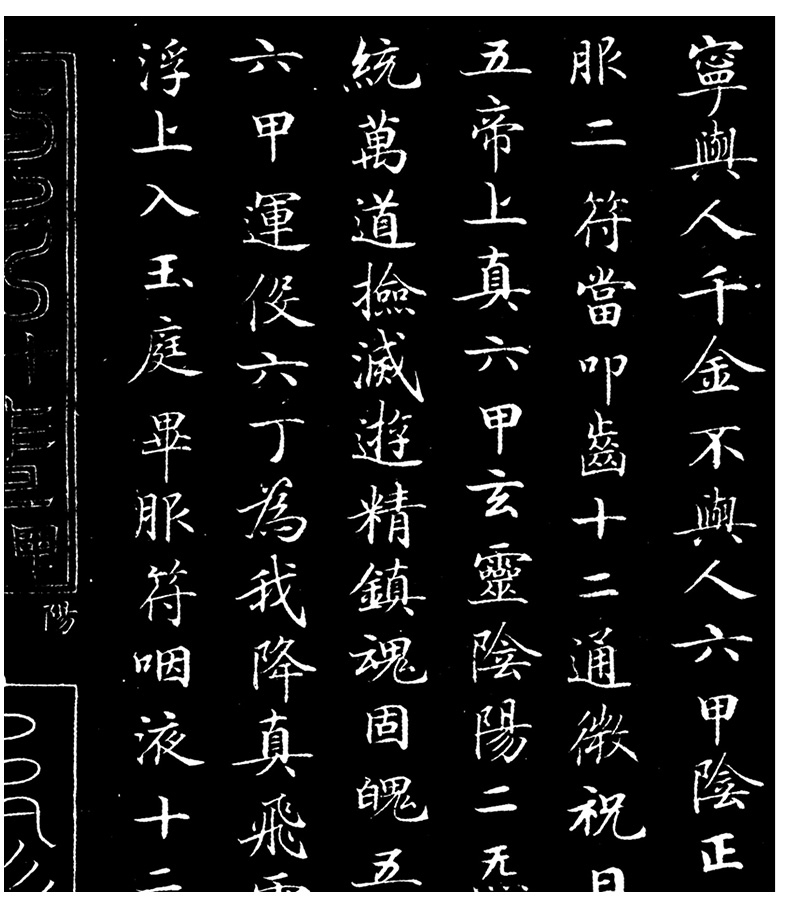 寧與人千金不與人六甲陰正
服二符當叩齒十二通微祝曰
五帝上真六甲玄靈陰陽二炁
統萬道撿滅遊精鎮魂固魄五
六甲運役六丁為我降真飛霄
浮上入玉庭畢服符咽液十二
陽